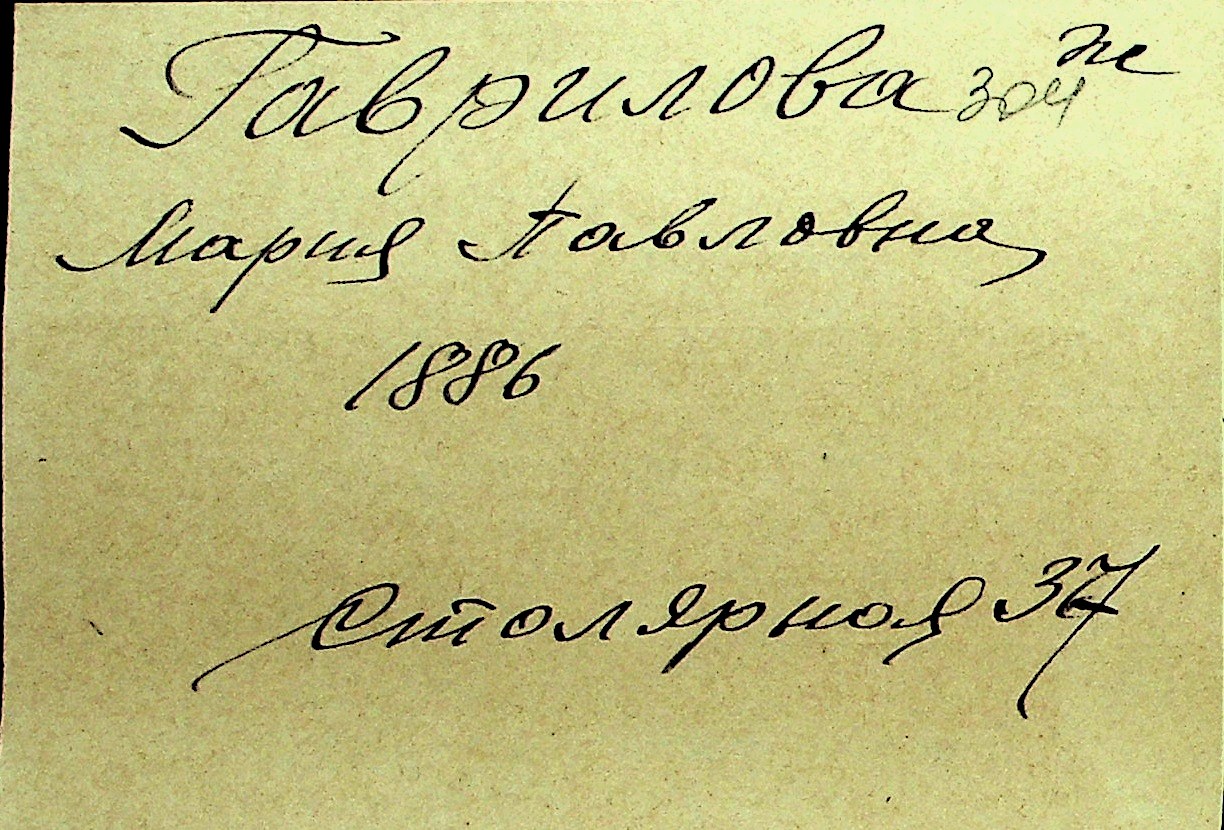 Гаврилова 304 ж
Мария Павловна
1886
Столярная 37